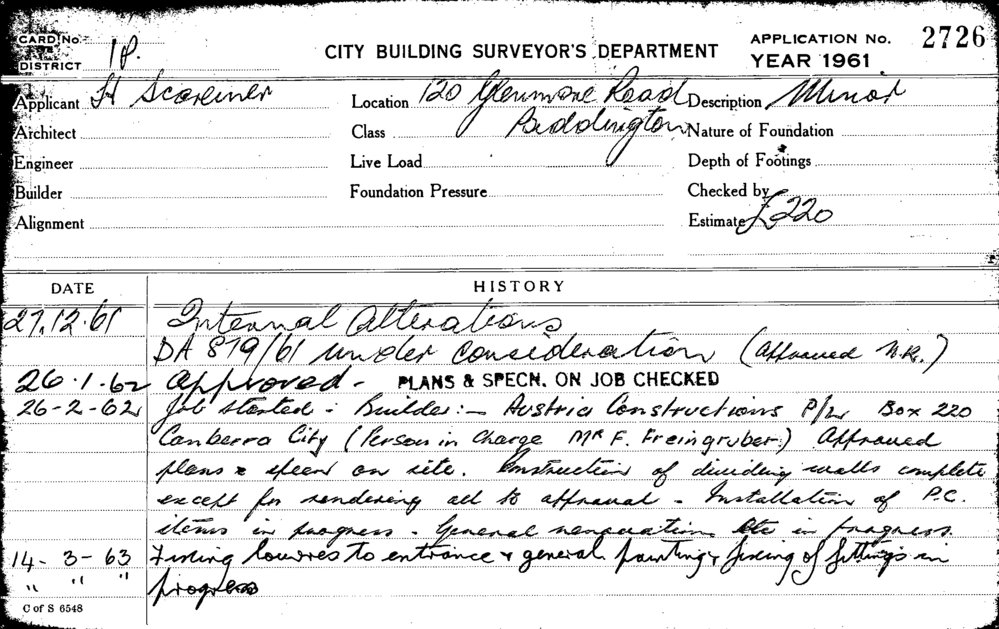 CARD No.
DISTRICT 18.
CITY BUILDING SURVEYOR'S DEPARTMENT
APPLICATION No. 2726
YEAR 1961
Applicant H
Location 120 Glenmore Road
Paddington
Description Minor
Architect
Class
Nature of Foundation
Engineer
Live Load
Depth of Footings
Builder
Foundation Pressure
Checked by
Alignment
Estimate £220
DATE HISTORY
27.12.61 Internal Alterations
DA 819/61 under consideration (approved N.R.)
26.1.62 Approved - PLANS & SPECN. ON JOB CHECKED
26-2-62 Job started - Builder:- Austria Constructions P/L Box 220
Canberra City (Person in charge Mr F. Freingruber.) Approved
plans & specn on site. Construction of dividing walls complete
except for rendering all to approval - Installation of P.C.
items in progress. General renovation etc in progress.
14-3-63 Fixing louvres to entrance & general painting & fixing of fittings in
" " " progress
C of S 6548